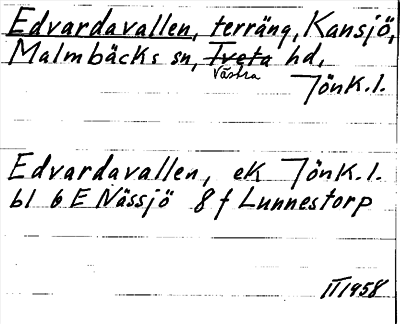 Edvardavallen, terräng, Kansjö,
Malmbäcks sn, Tveta hd,
Västra
Jönk. l.
Edvardavallen, ek Jönk. l.
bl 6 E Nässjö 8 f Lunnestorp
II 1958